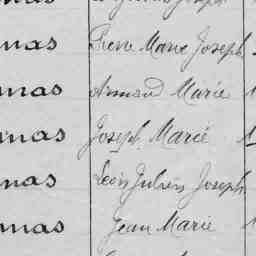 nas Joseph
nas Pierre Marie Joseph
nas Armand Marie
nas Joseph Marie
nas Léon Julien Joseph
nas Jean Marie